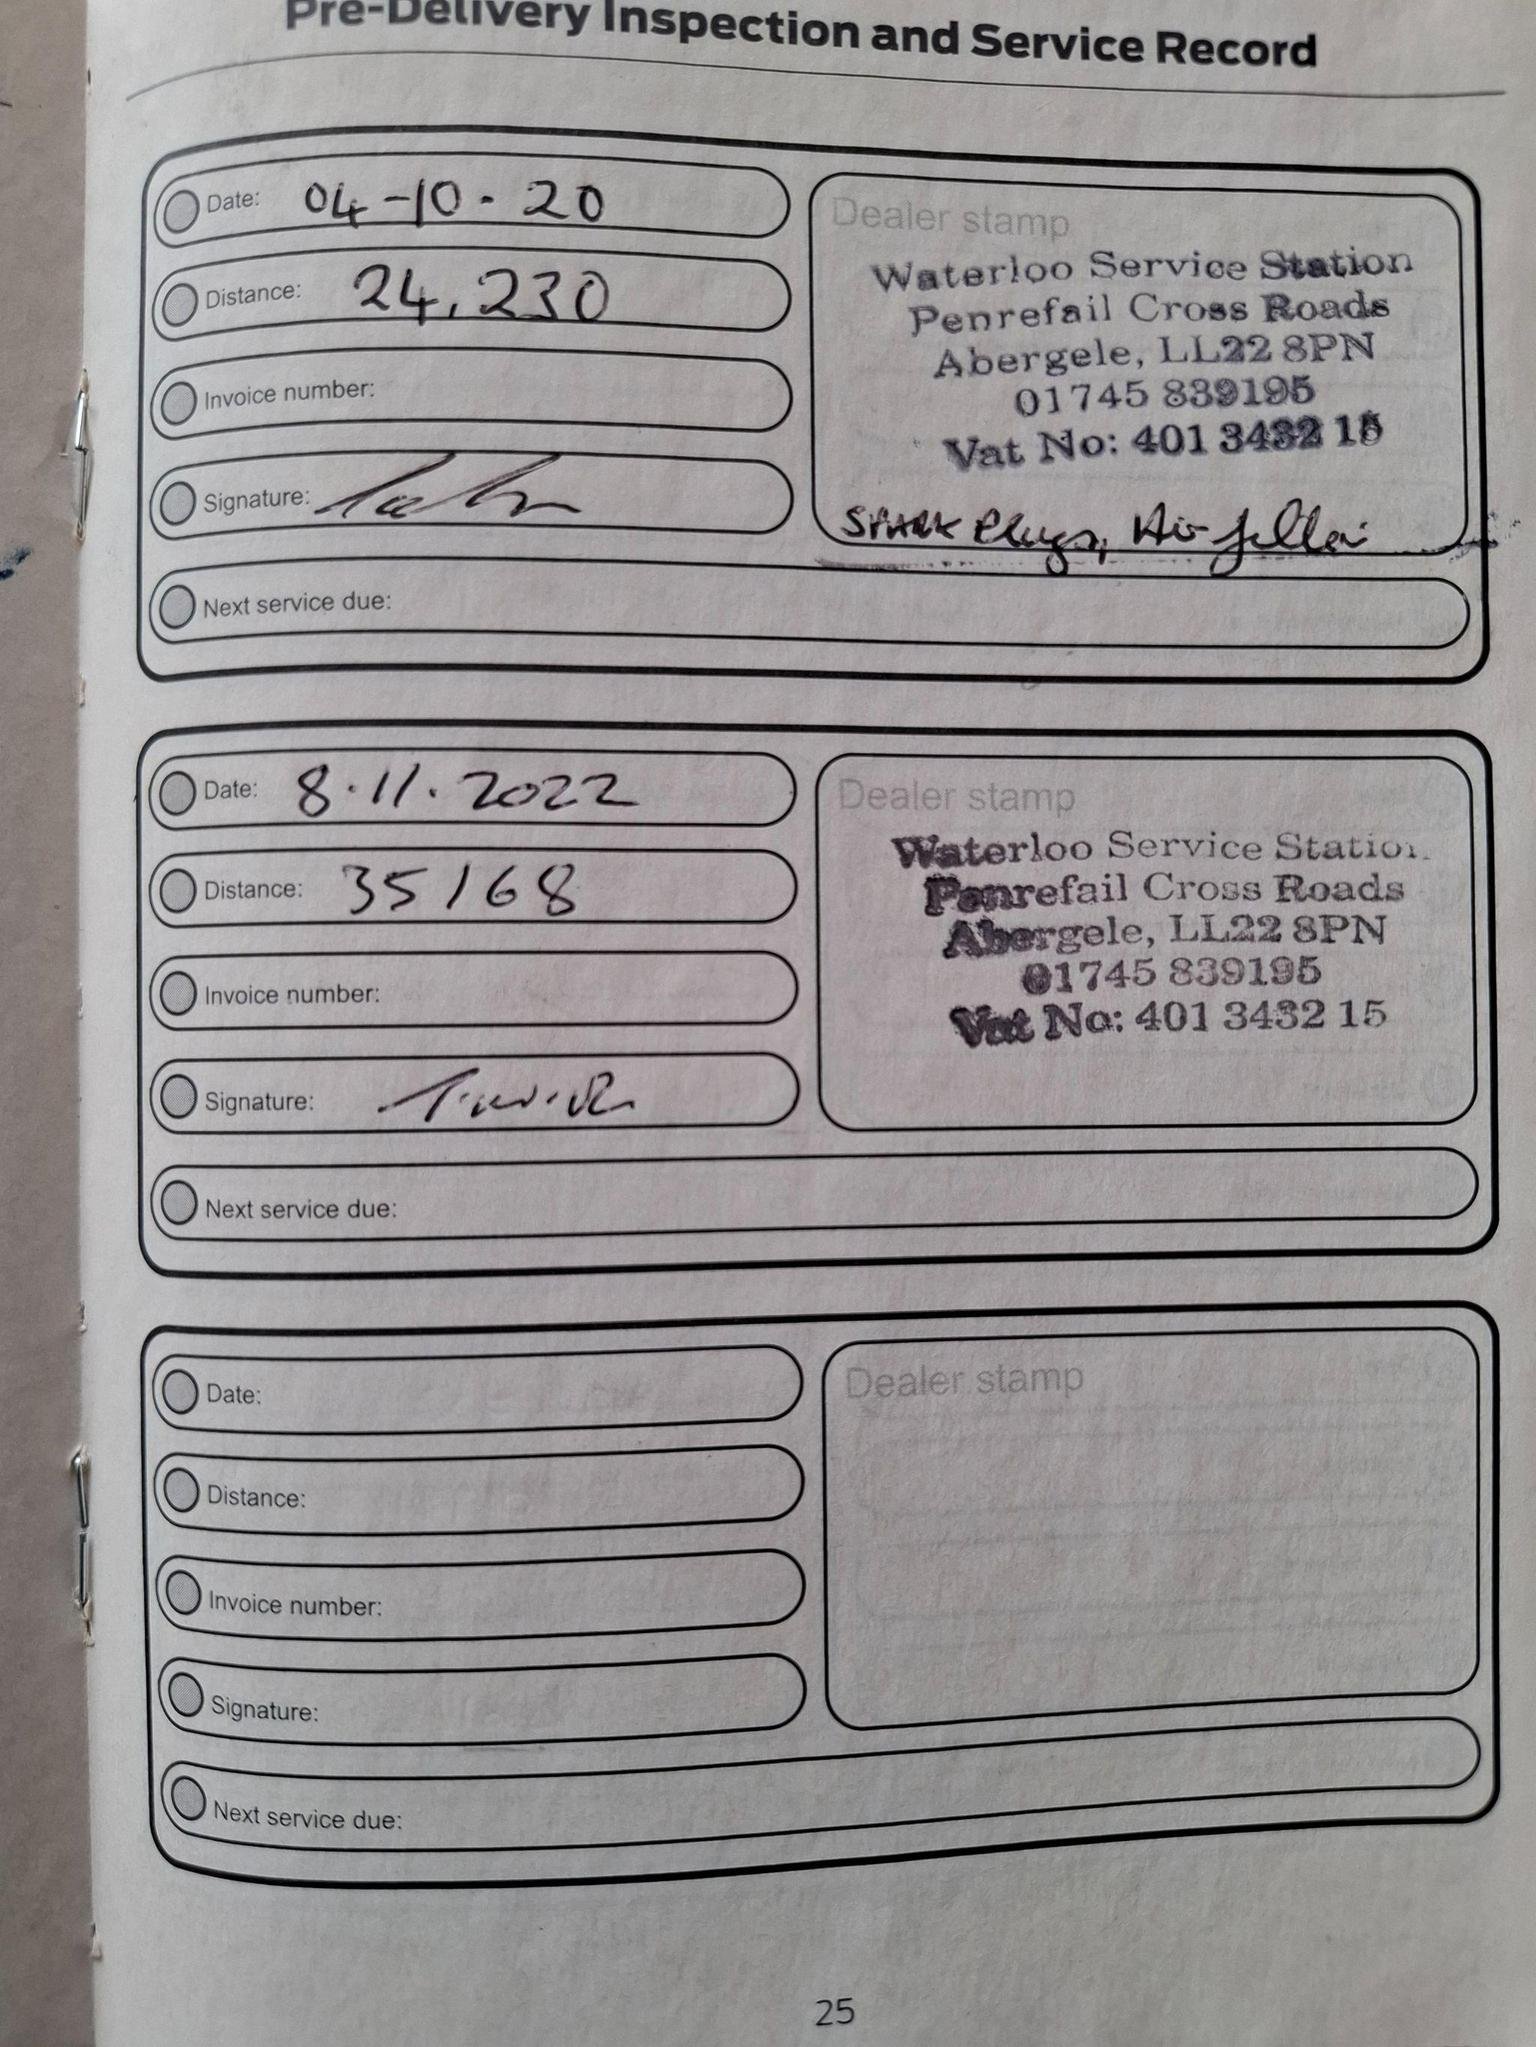 Pre-Delivery Inspection and Service Record
Date: 04-10-20
Distance: 24,230
Invoice number:
Signature:
Dealer stamp
Waterloo Service Station
Penrefail Cross Roads
Abergele, LL22 8PN
01745 839195
Vat No: 401 3432 15
SPARK Plugs, Air filter
Next service due:
Date: 8.11.2022
Distance: 35168
Invoice number:
Signature:
Dealer stamp
Waterloo Service Station
Penrefail Cross Roads
Abergele, LL22 8PN
01745 839195
Vat No: 401 3432 15
Next service due:
Date:
Distance:
Invoice number:
Signature:
Dealer stamp
Next service due:
25